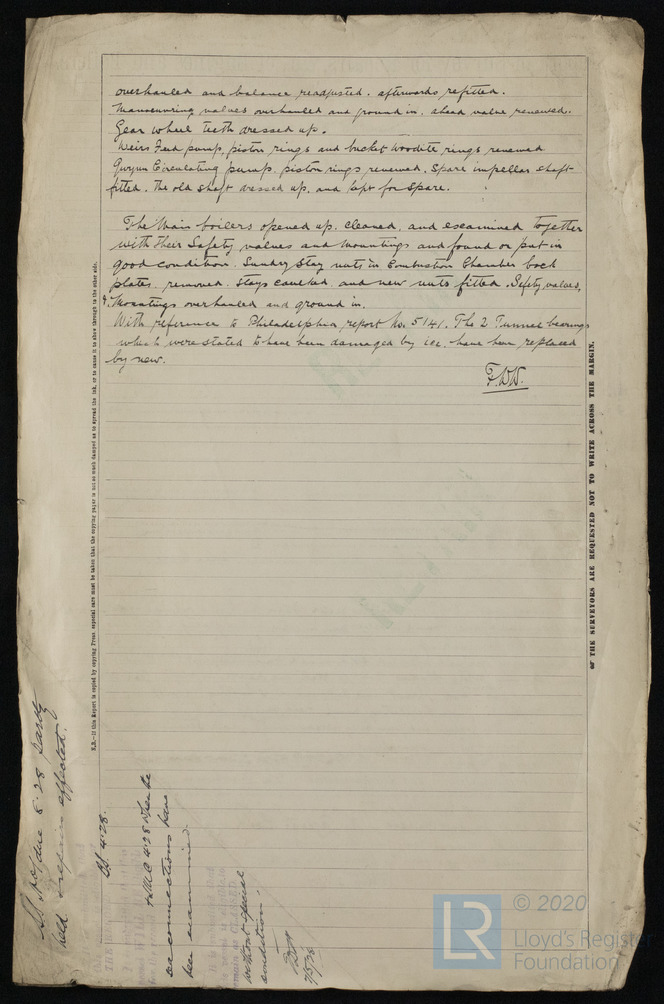 overhauled and balance readjusted. afterwards refitted.
Manoeuvring valves overhauled and ground in, ahead valve renewed.
Gear wheel teeth dressed up.
Weirs Feed pump, piston rings and bucket Woodite rings renewed
Gwynn Circulating pump. piston rings renewed, Spare impellar shaft
fitted. The old shaft dressed up, and kept for spare.
The Main boilers opened up, cleaned, and examined together
with their Safety valves and Mountings and found or put in
good condition. Sundry Stay nuts in Combustion Chamber back
plates removed. Stays caulked and new nuts fitted. Safety valves,
& Mountings overhauled and ground in.
With reference to Philadelphia report No. 5141. The 2 Tunnel bearings
which were stated to have been damaged by ice. have been replaced
by new.
F.W.W.
N.B.—If this Report is copied by copying Press, especial care must be taken that the copying paper is not so much damped as to spread the ink, or to cause it to show through to the other side.
THE SURVEYORS ARE REQUESTED NOT TO WRITE ACROSS THE MARGIN.
due 8.28 partly
held repairs effected.
BS 4.28.
& LMC 4.28 when the
sea connections have
been examined.
without special
condition.
7/5/28
LR
© 2020
Lloyd's Register
Foundation